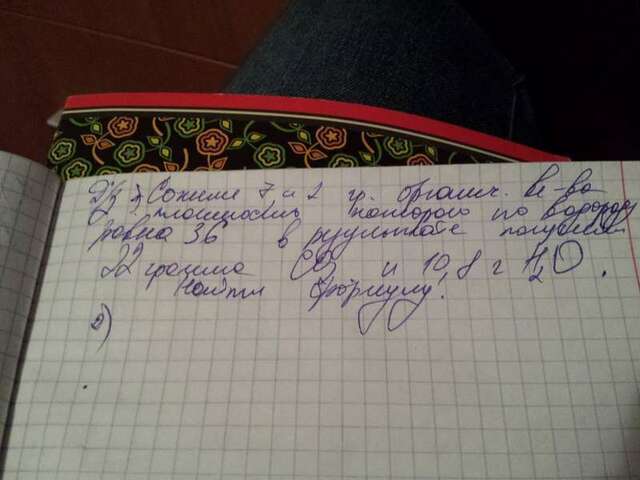 Д/з 1) Сожгли 7 и 2 гр. органич. ве-ва
плотность которого по водороду
равна 36 в результате получили
22 грамма CO2 и 10,8 г H2O.
Найти формулу!
2)